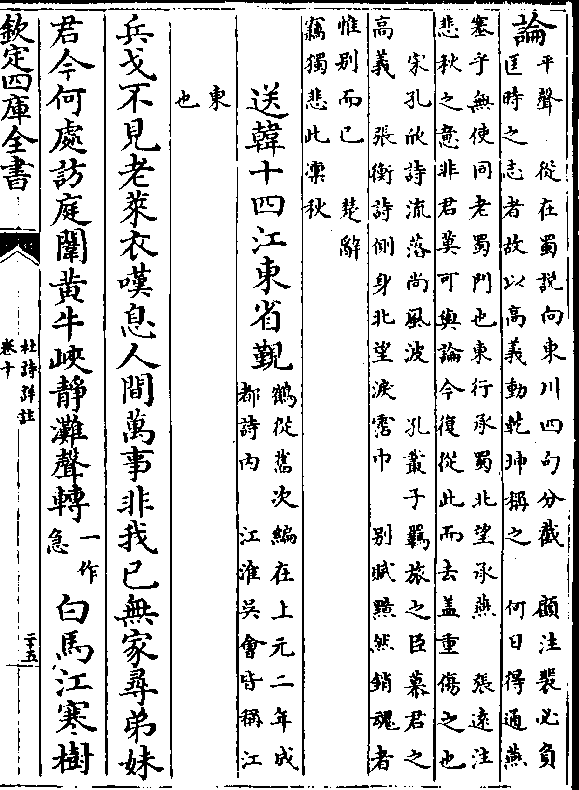 論
平聲　從在蜀說向東川四句分截　顧注裴必負
匡時之志者故以高義動乾坤稱之　何日得通燕
塞乎無使同老蜀門也東行承蜀北望承燕　張遠注
悲秋之意非君莫可與論今復從此而去蓋重傷之也
宋孔欣詩流落尚風波　孔叢子羈旅之臣慕君之
高義　張衡詩側身北望淚霑巾　別賦黯然銷魂者
惟別而已　楚辭
竊獨悲此凜秋
送韓十四江東省覲
鶴從舊次編在上元二年成
都詩內　江淮吳會皆稱江
東
也
兵戈不見老萊衣嘆息人間萬事非我已無家尋弟妹
君今何處訪庭闈黃牛峽靜灘聲轉
一作
急
白馬江寒樹
欽定四庫全書
杜詩詳註
卷十
二十五